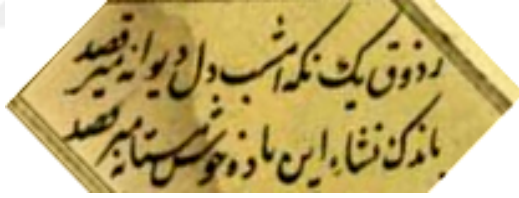 ز ذوق یک نگه امشب دل دیوانه میرقصد
بنازم نشاء این باده خوش مستانه میرقصد